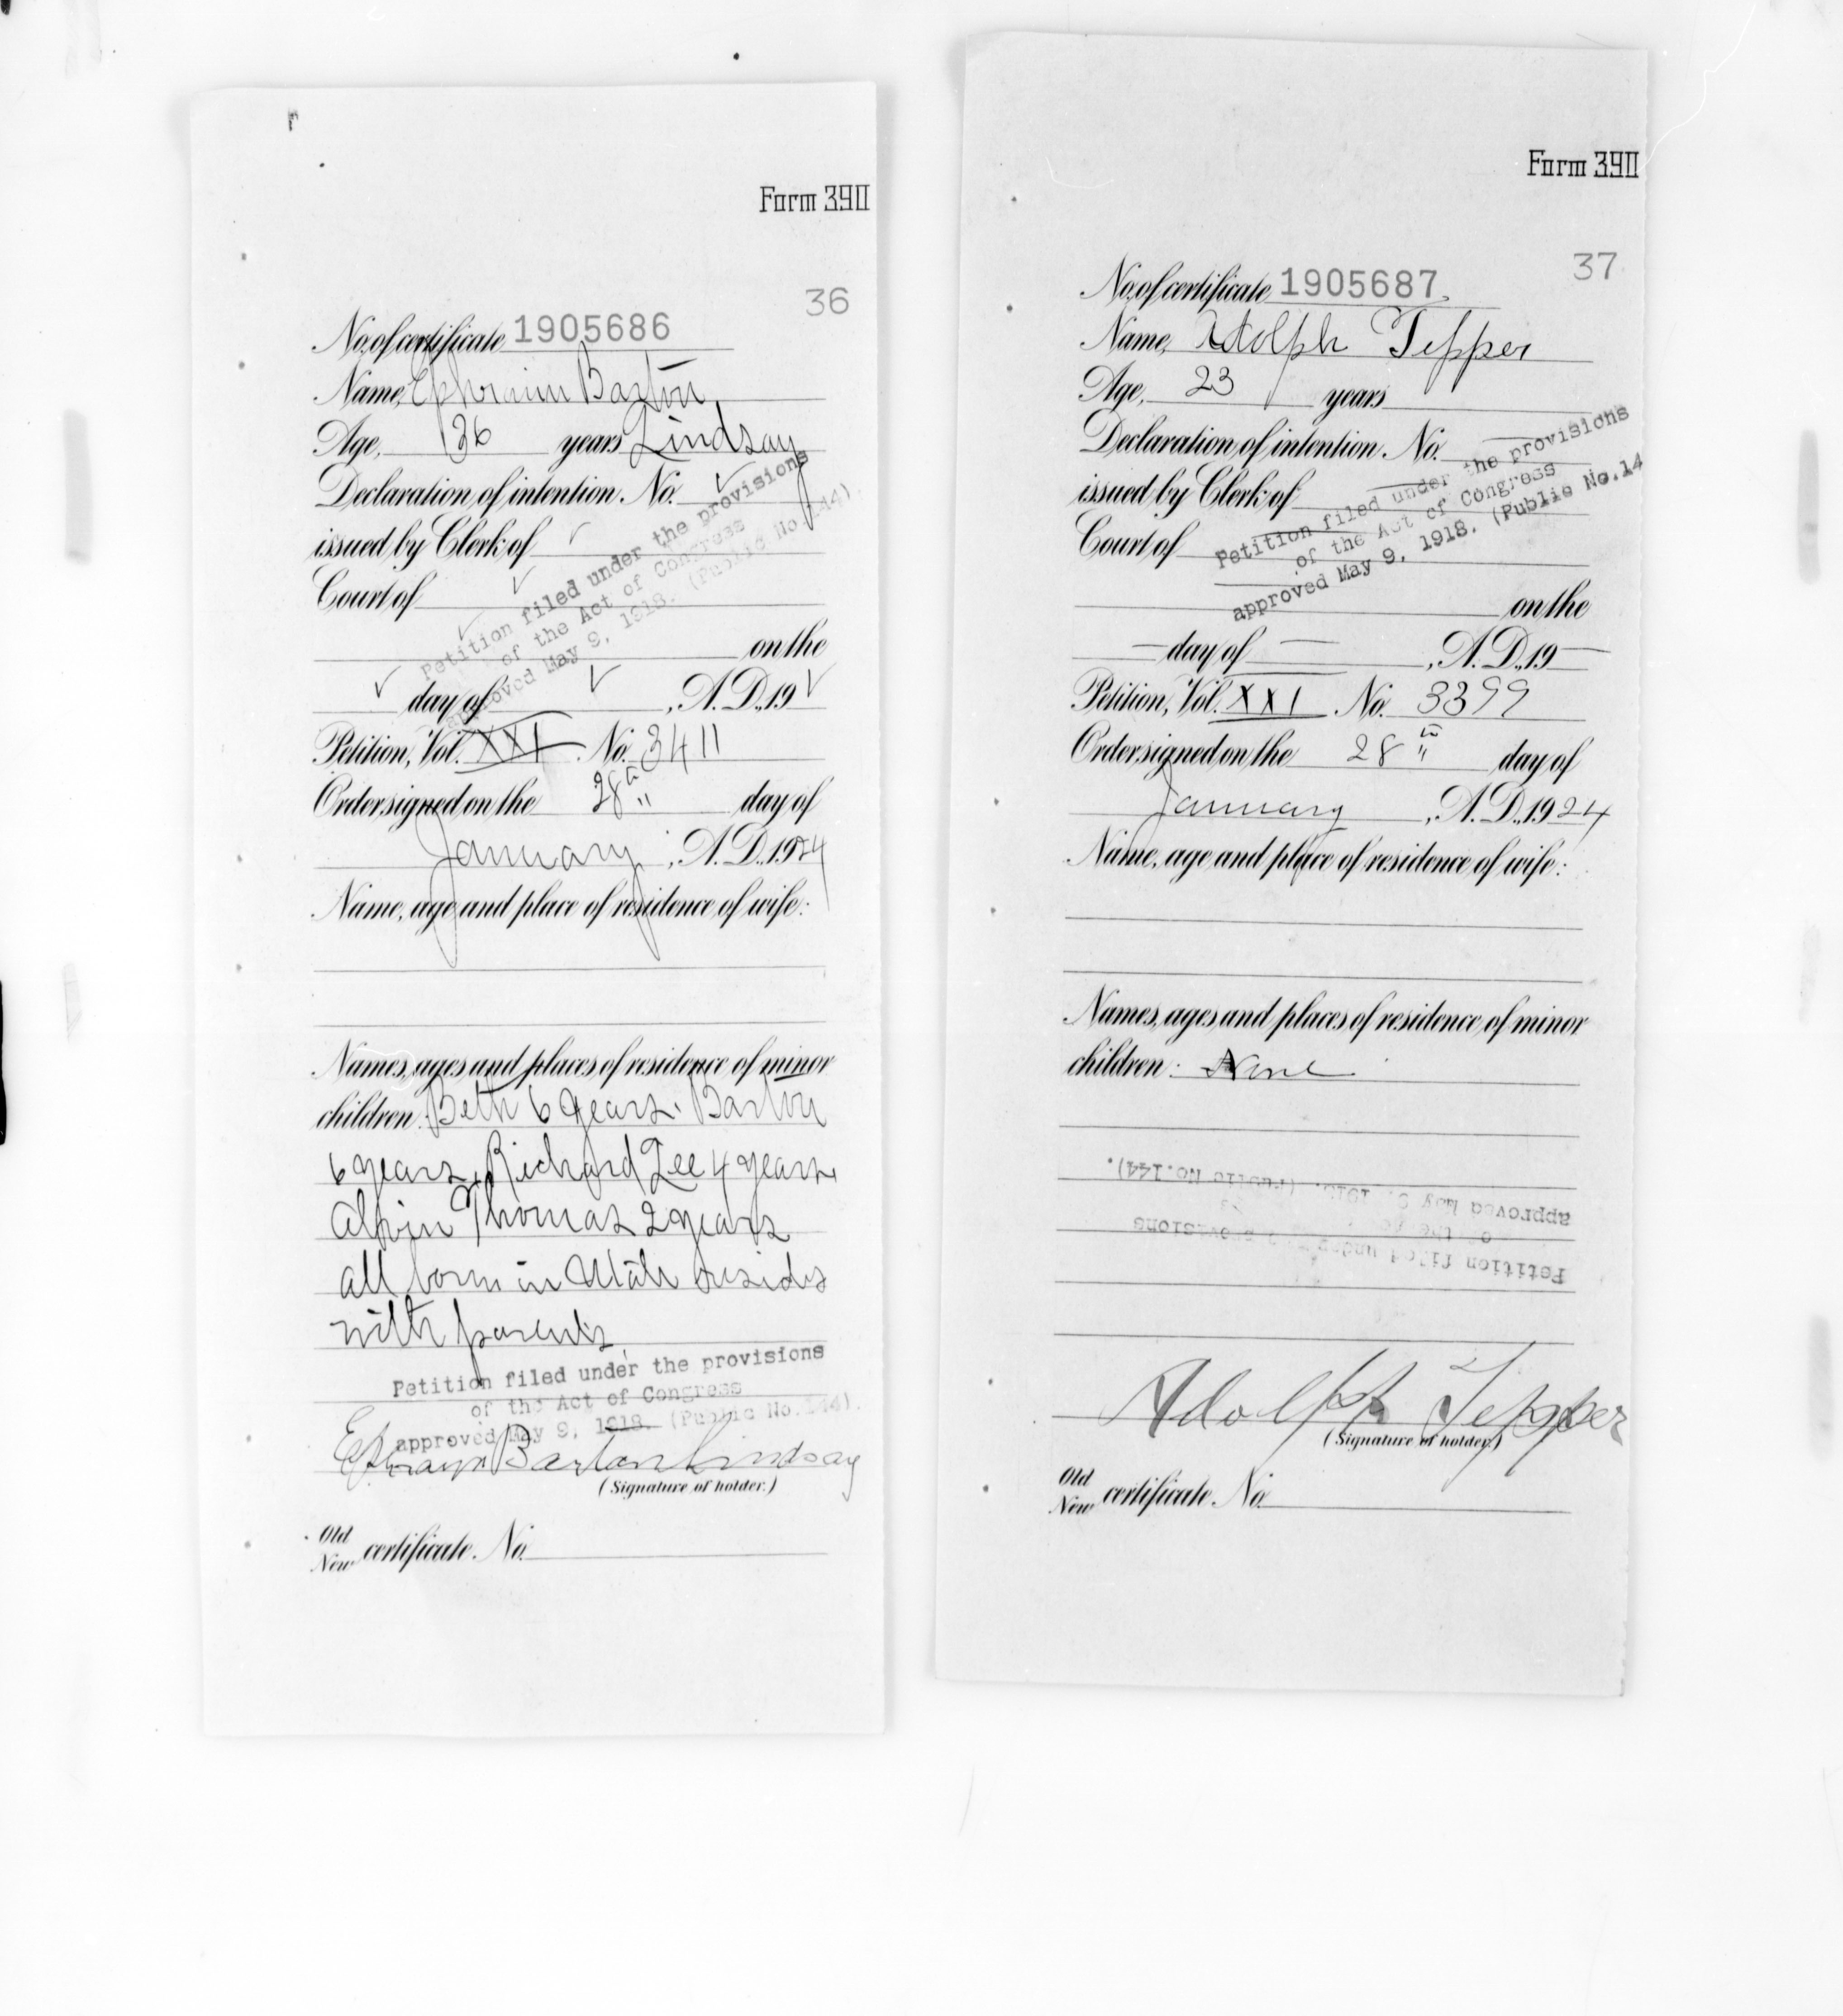 Form 390
36
No. of certificate 1905686
Name, Ephraim Barton
Age, 36 years Lindsay
Declaration of intention No. ✓
issued by Clerk of ✓
Court of ✓
Petition filed under the provisions
of the Act of Congress
approved May 9, 1918. (Public No. 144).
on the
✓ day of ✓, A.D. 19 ✓
Petition, Vol. XXI No. 3411
Order signed on the 28th day of
January, A.D. 1924
Name, age and place of residence of wife:
Names, ages and places of residence of minor
children: Beth 6 years. Barton
6 years, Richard Lee 4 years,
Alvin Thomas 2 years
all born in Utah resides
with parents
Petition filed under the provisions
of the Act of Congress
approved May 9, 1918. (Public No. 144).
Ephraim Barton Lindsay
(Signature of holder.)
Old
New certificate No.
Form 390
37
No. of certificate 1905687
Name, Adolph Tepper
Age, 23 years
Declaration of intention No. —
issued by Clerk of —
Court of —
Petition filed under the provisions
of the Act of Congress
approved May 9, 1918. (Public No. 14
on the
— day of —, A.D. 19 —
Petition, Vol. XXI No. 3399
Order signed on the 28th day of
January, A.D. 1924
Name, age and place of residence of wife:
Names, ages and places of residence of minor
children: None
Petition filed under the provisions
of the
approved May 9, 1918. (Public No. 144).
Adolph Tepper
(Signature of holder.)
Old
New certificate No.